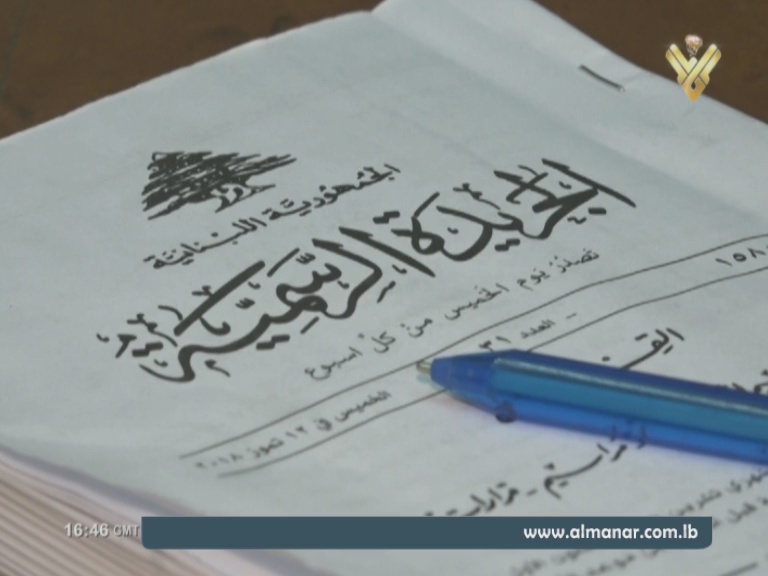 الجمهورية اللبنانية
الجريدة الرسمية
تصدر يوم الخميس من كل اسبوع
العدد ٣١ -
الخميس في ١٢ تموز ٢٠١٨
مراسيم - قرارات
16:46 GMT
www.almanar.com.lb